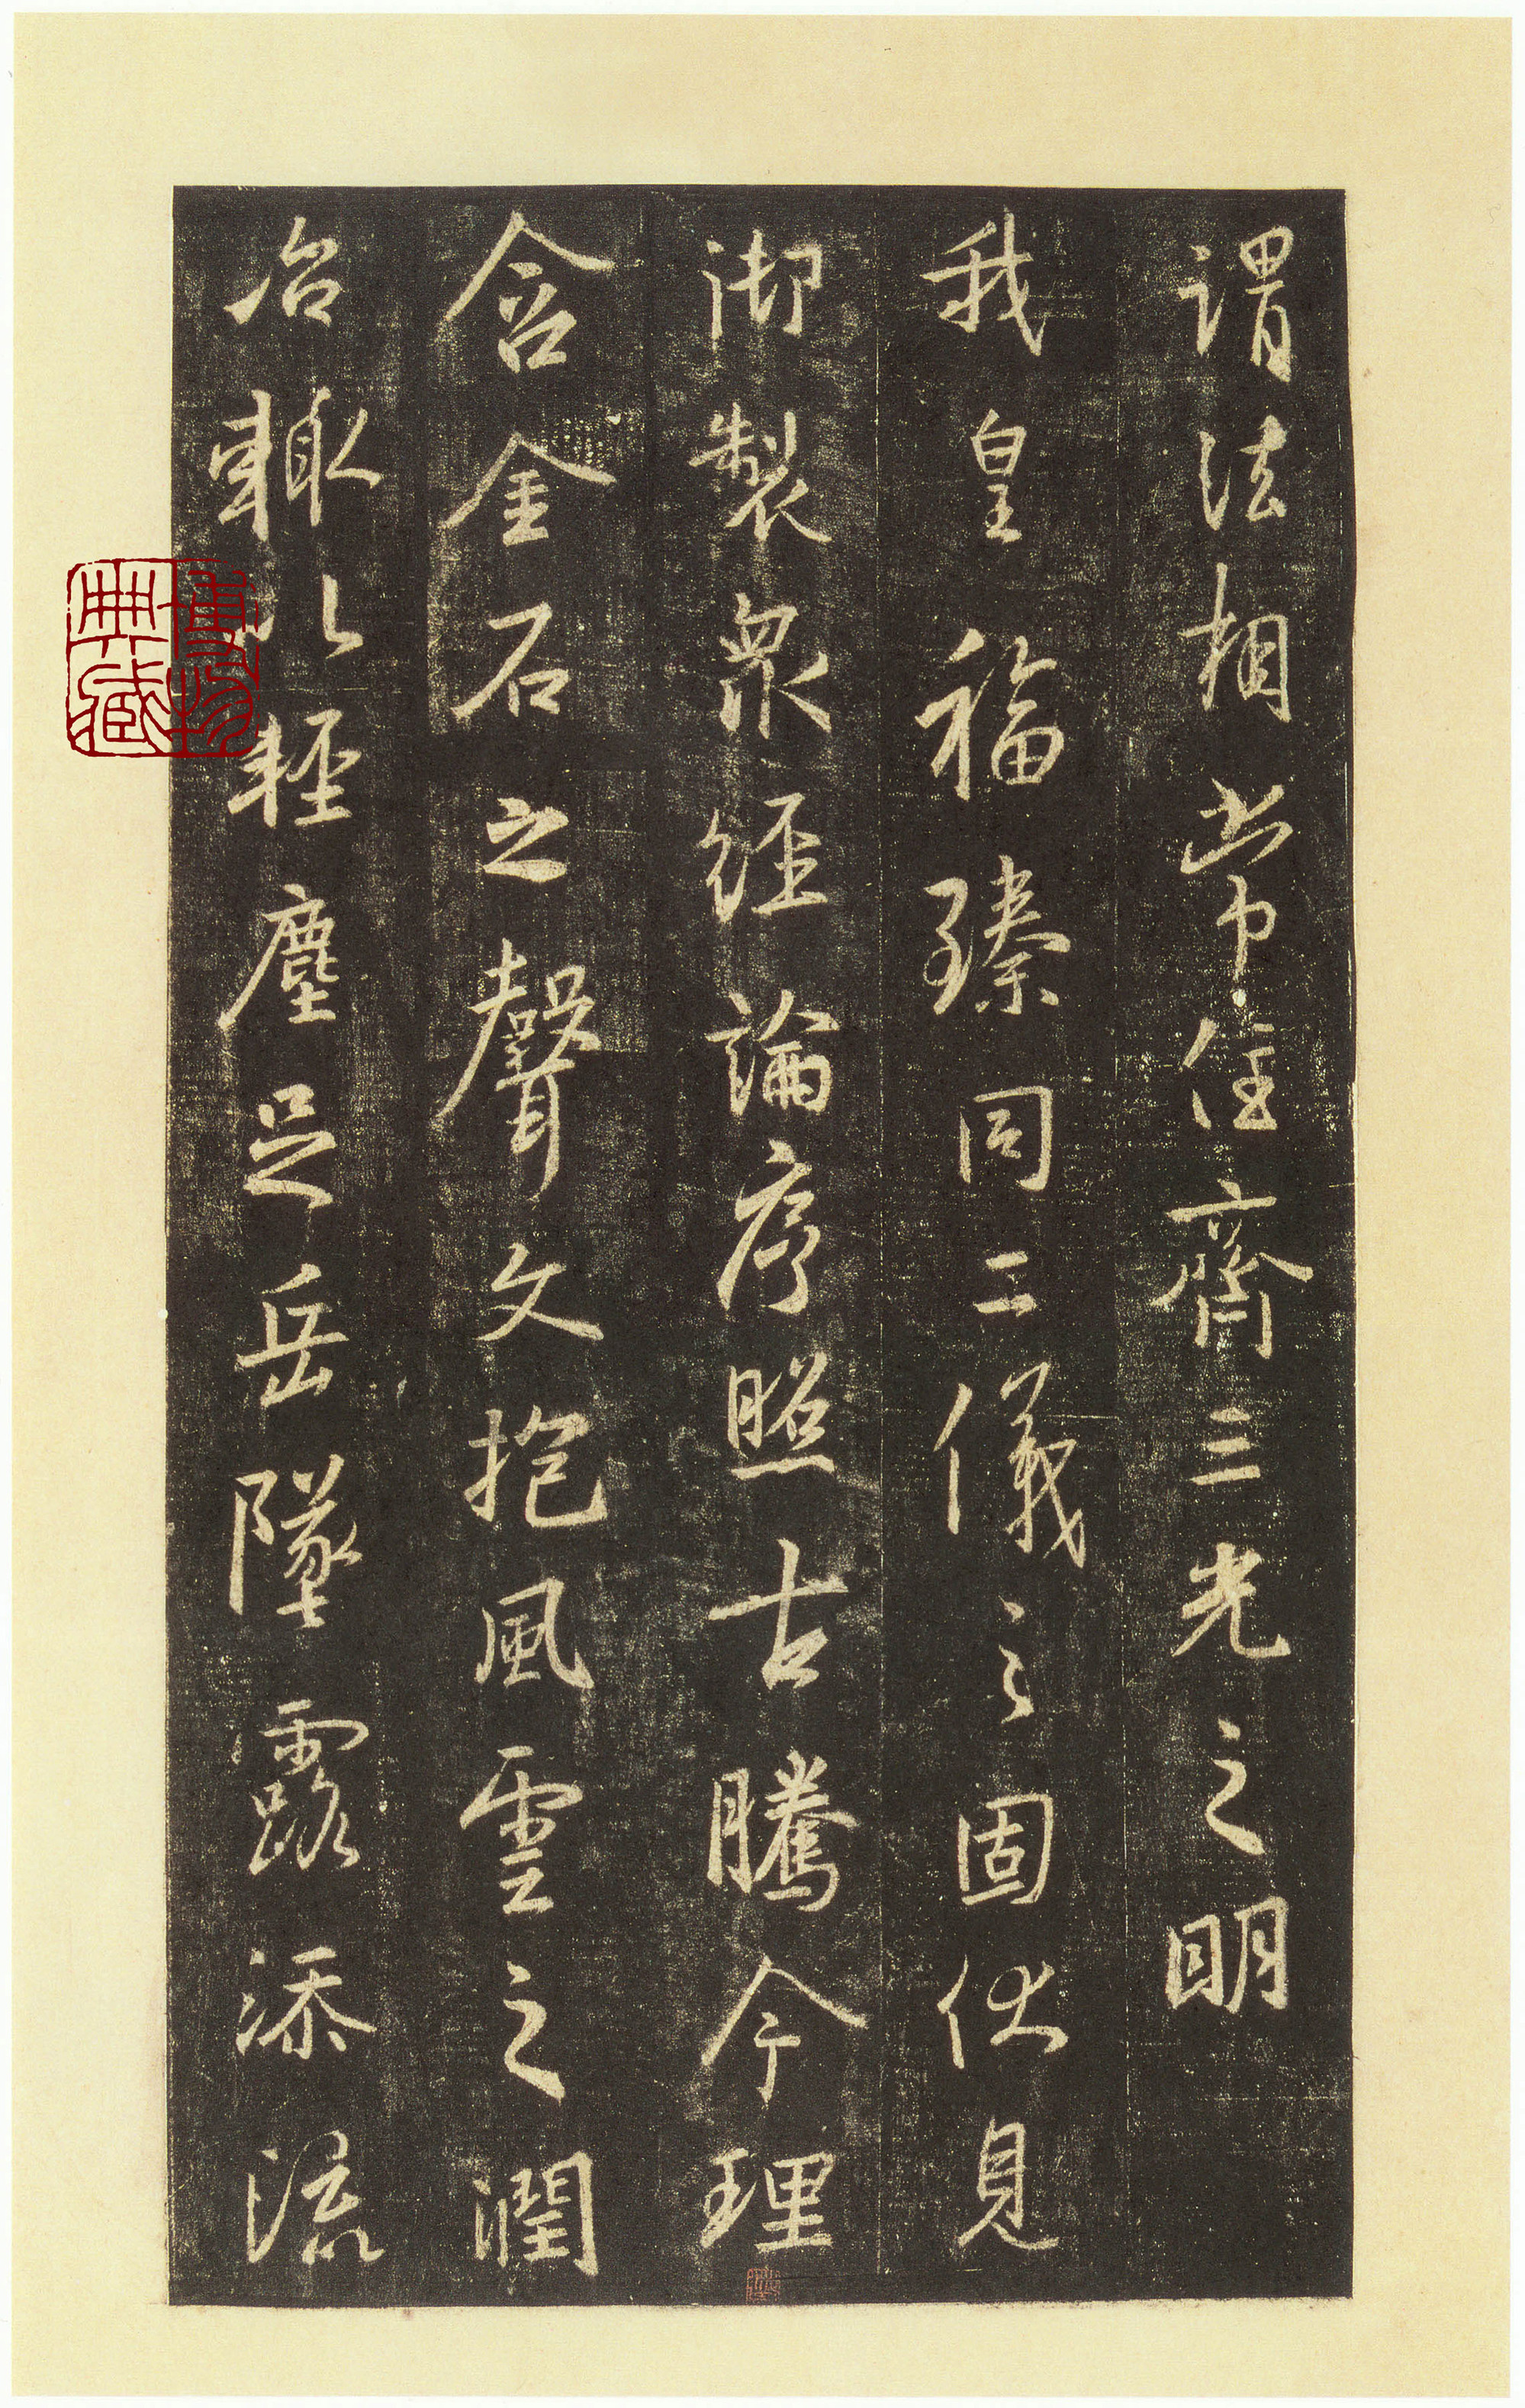 謂法相常住齊三光之明
我皇福臻同二儀之固伏見
御製眾經論序照古騰今理
含金石之聲文抱風雲之潤
治輒以輕塵足岳墜露添流
博物典藏